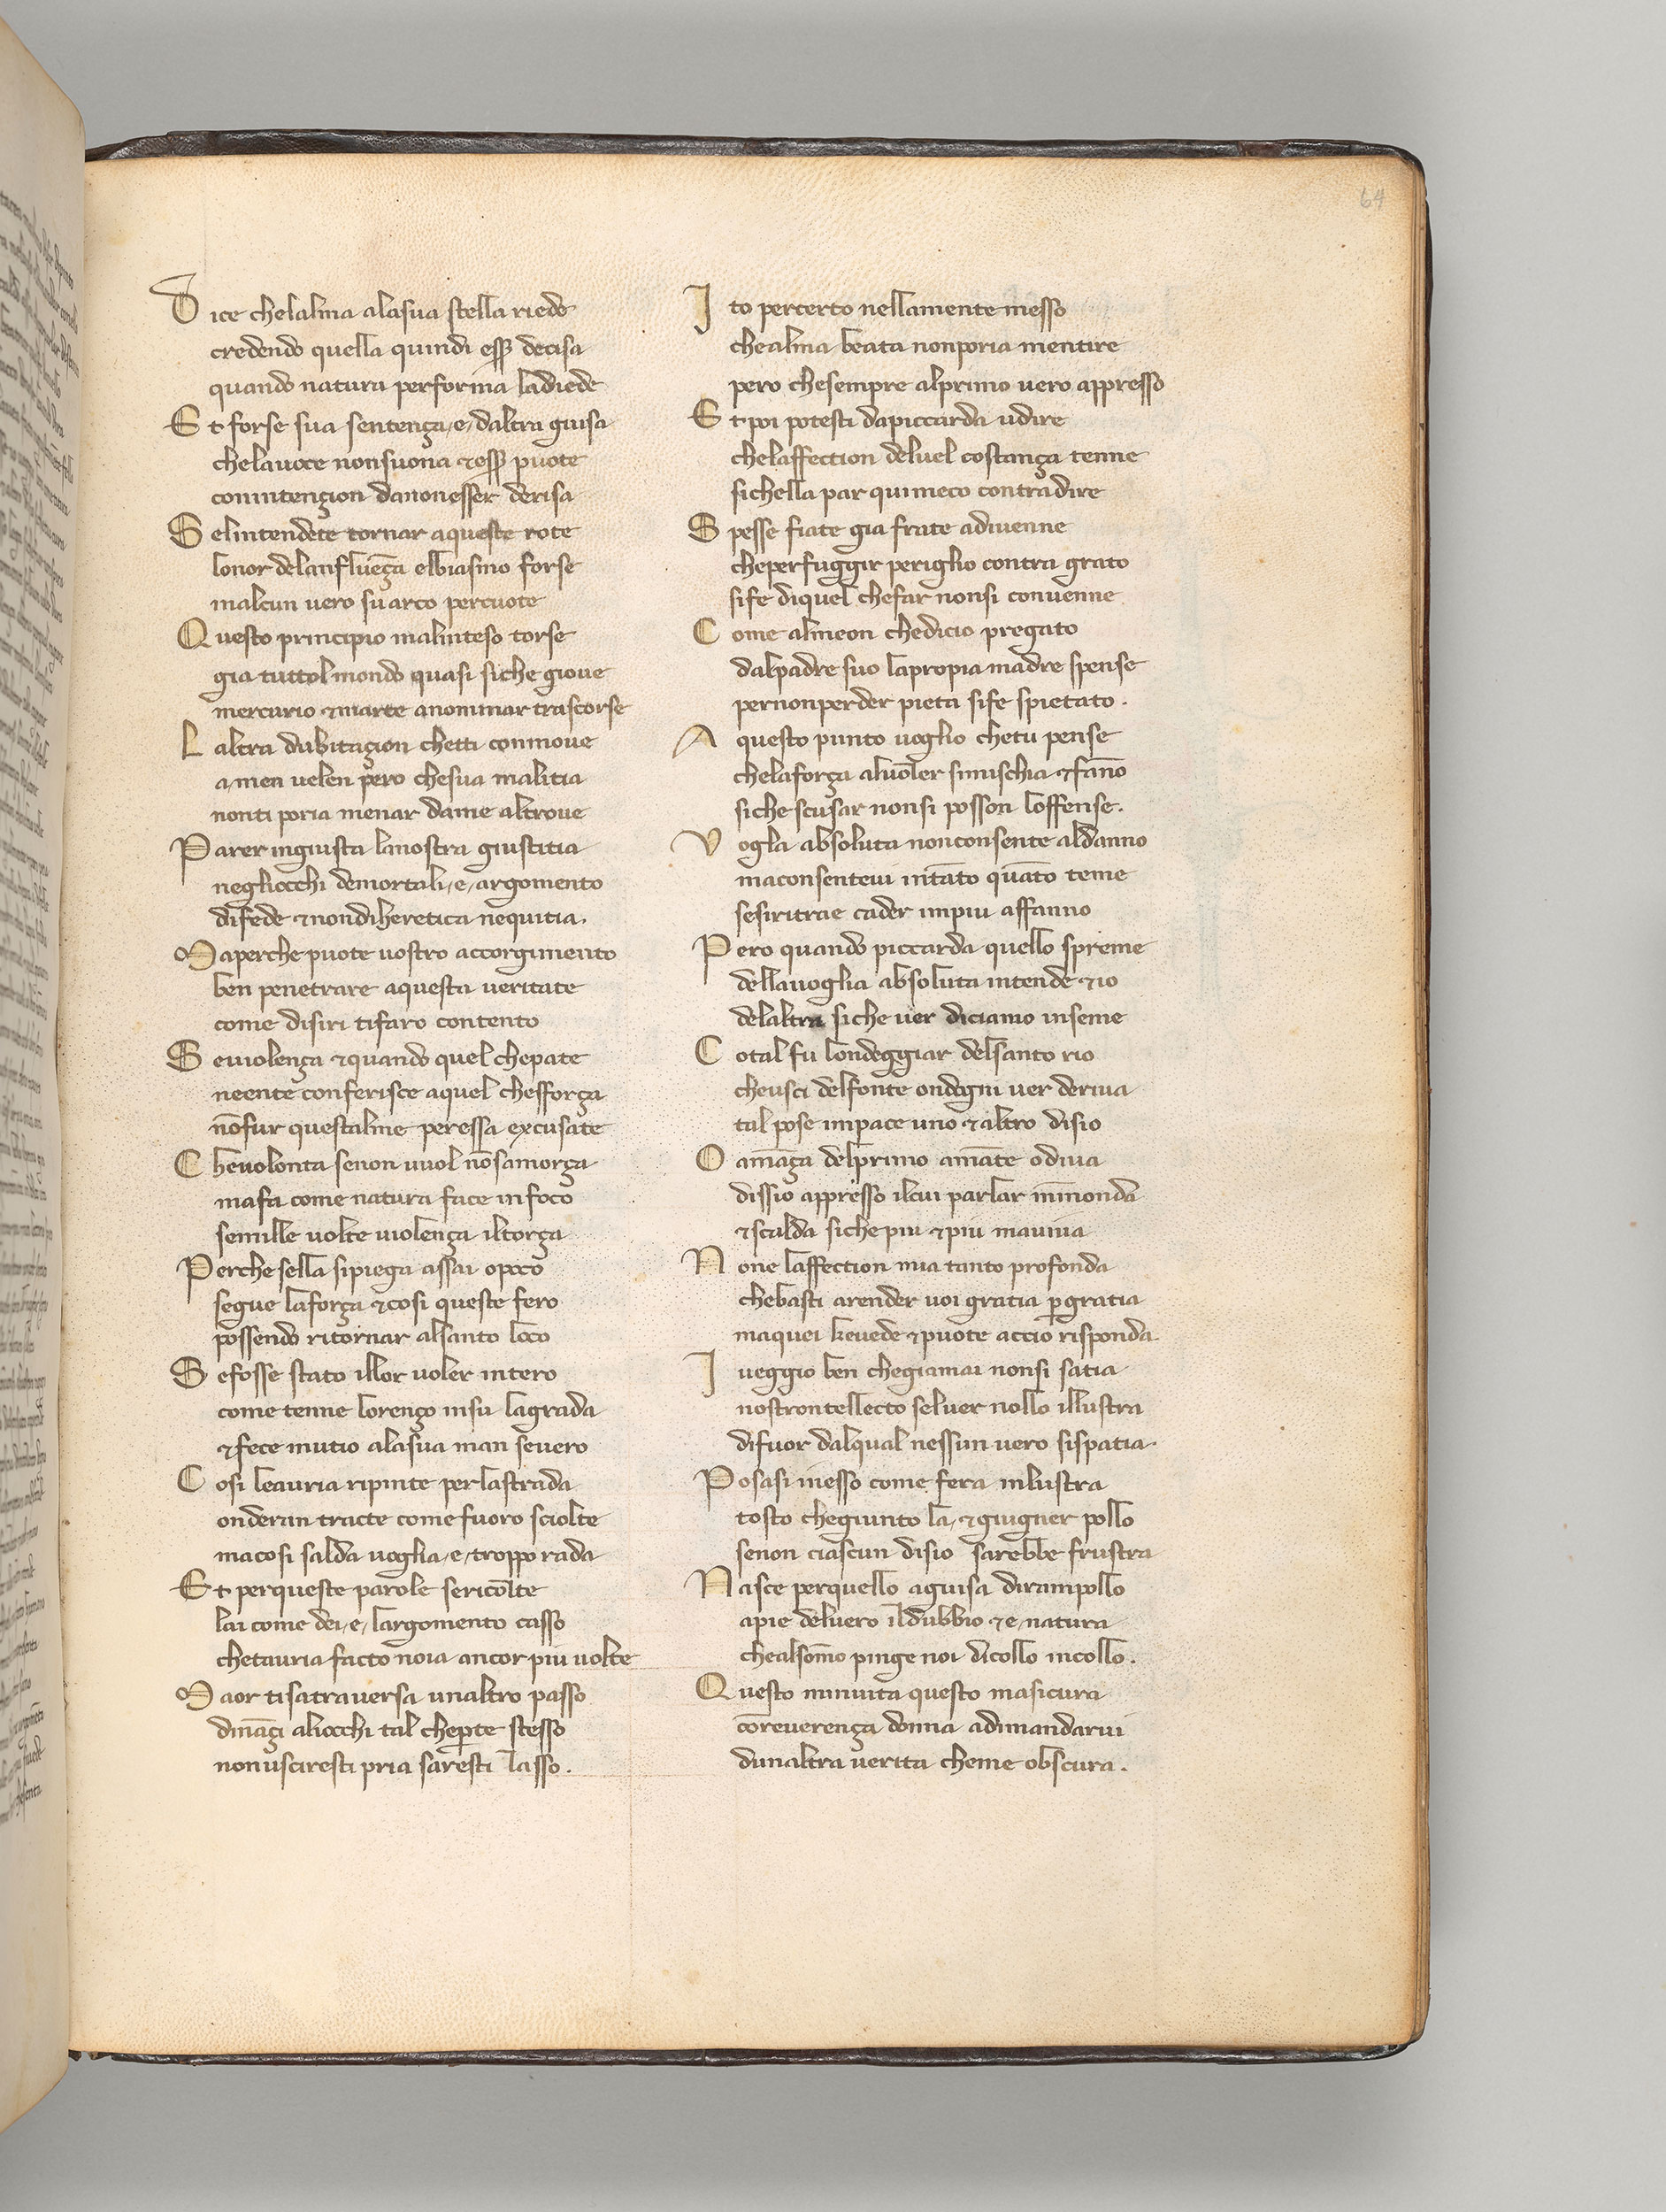 64
Dice chelalma alasua stella riede
credendo quella quindi esser decisa
quando natura performa ladiede
Et forse sua sentença, e, daltra guisa
chelauoce nonsuona &esser puote
conintençion danonesser derisa
Selintendete tornar aqueste rote
lonor delanfluẽça elbiasmo forse
malcun uero suarco percuote
Questo principio malinteso torse
gia tuttol mondo quasi siche gioue
mercurio &marte anominar trascorse
Laltra dubitaçion chetti conmoue
amen uelen pero chesua malitia
nonti poria menar dame altroue
Parer ingiusta lanostra giustitia
negliocchi demortali, e, argomento
difede &nondiheretica nequitia.
Maperche puote uostro accorgimento
ben penetrare aquesta ueritate
come disiri tifaro contento
Seuiolença &quando quel chepate
neente conferisce aquel chesforça
nõfur questalme peressa excusate
Cheuolonta senon uuol nõsamorça
mafa come natura face infoco
semille uolte uiolença iltorça
Perche sella sipiega assai opoco
segue laforça &cosi queste fero
possendo ritornar alsanto loco
Sefosse stato illor uoler intero
come tenne lorenço insu lagrada
&fece mutio alasua man seuero
Cosi leauria ripinte perlastrada
onderan tracte comefuoro sciolte
macosi salda uoglia, e, troppo rada
Et perqueste parole sericolte
lai come dei, e, largomento casso
chetauria facto noia ancor piu uolte
Maor tisatrauersa unaltro passo
dinãçi aliocchi tal cheperte stesso
nonusciresti pria saresti lasso.
Ito percerto nellamente messo
chealma beata nonporia mentire
pero chesempre alprimo uero appresso
Et poi potesti dapiccarda udire
chelaffection deluel costança tenne
sichella par quimeco contradire
Spesse fiate gia frate adiuenne
cheperfuggir periglio contra grato
sife diquel chefar nonsi conuenne
Come almeon chedicio pregato
dalpadre suo lapropia madre spense
pernonperder pieta sife spietato.
Aquesto punto uoglio chetu pense
chelaforça aluoler simischia &fãno
siche scusar nonsi posson loffense.
Vogla absoluta nonconsente aldanno
maconsenteui intãto quãto teme
sesiritrae cader inpiu affanno
Pero quando piccarda quello spreme
dellauoglia absoluta intende &io
delaltra siche uer diciamo inseme
Cotal fu londeggiar delsanto rio
cheusci delfonte ondogni uer deriua
tal pose inpace uno &altro disio
O amãça delprimo amãte odiua
dissio appresso ilcui parlar mĩnonda
&scalda siche piu &piu mauiua
None laffection mia tanto profonda
chebasti arender uoi gratia ꝑgratia
maquei keuede &puote accio risponda
I ueggio ben chegiamai nonsi satia
nostrontellecto seluer nollo illustra
difuor dalqual nessun uero sispatia.
Posasi inesso come fera inlustra
tosto chegiunto la, &giugner pollo
senon ciascun disio sarebbe frustra
Nasce perquello aguisa dirampollo
apie deluero ildubbio &e, natura
chealsõmo pinge noi dicollo incollo.
Questo minuita questo masicura
cõreuerença donna adimandarui
dunaltra uerita cheme obscura.